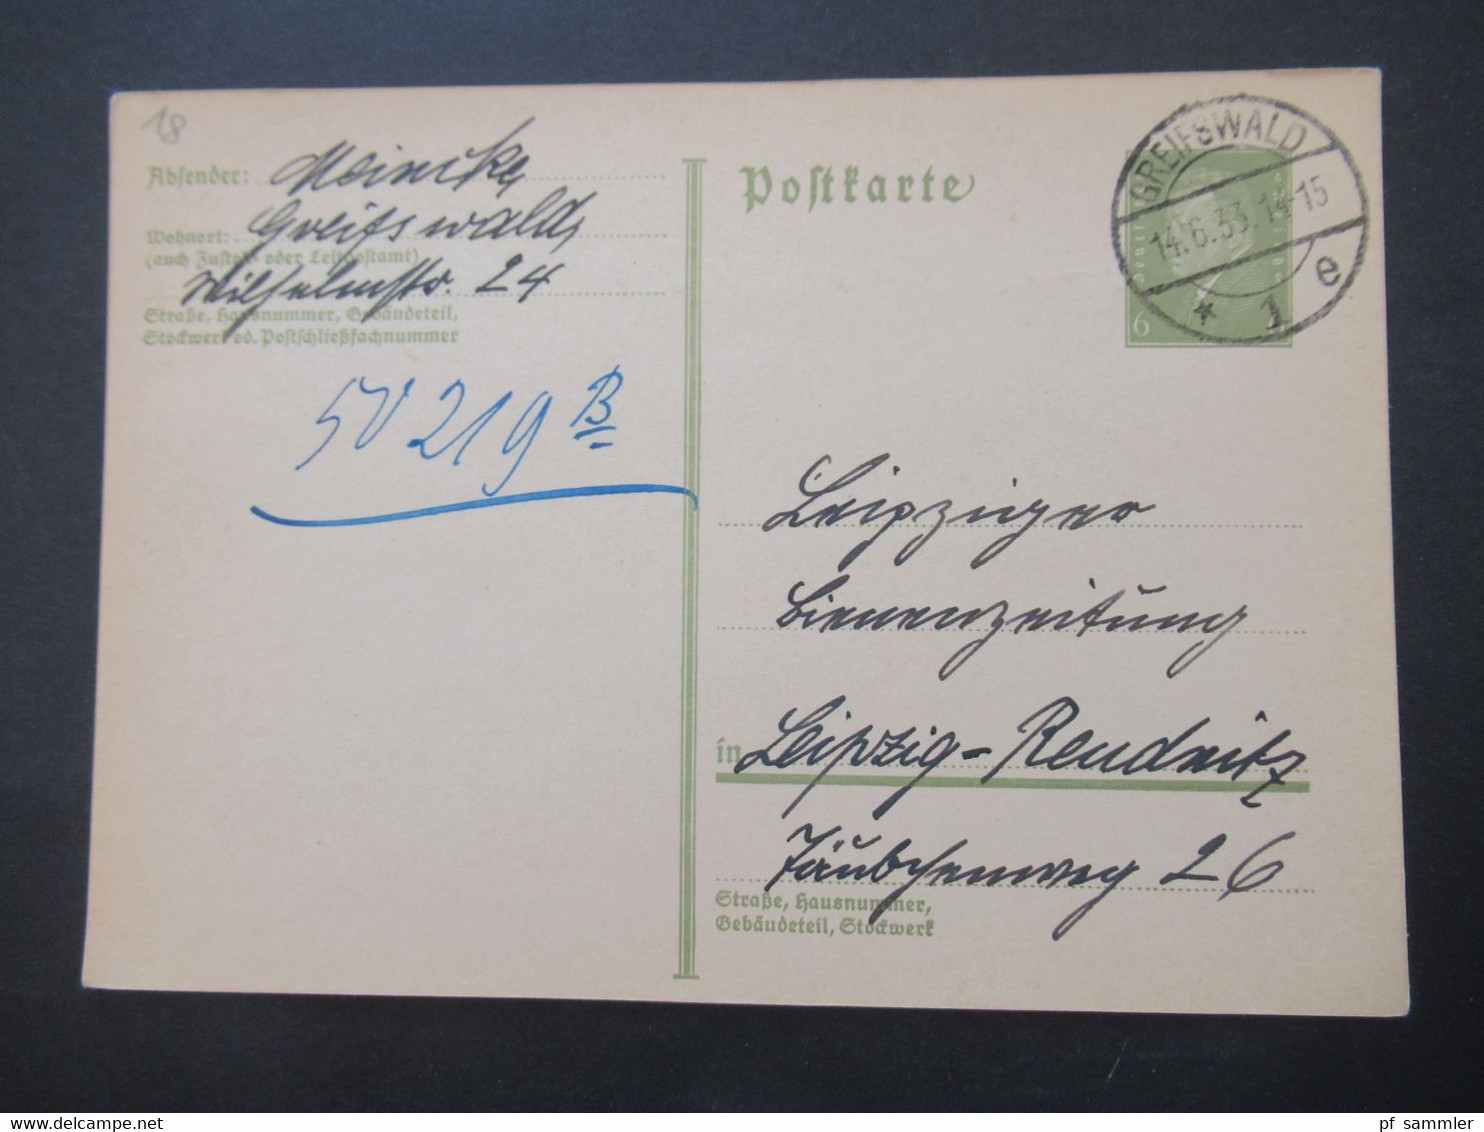 18
Absender: Meincke,
Wohnort: Greifswald,
(auch Zustell- oder Leitpostamt)
Wilhelmstr. 24
Straße, Hausnummer, Gebäudeteil,
Stockwerk od. Postschließfachnummer
50219 B
Postkarte
GREIFSWALD
14.6.33.14-15
* 1 e
6
Leipziger
Bienenzeitung
in Leipzig-Reudnitz
Täubchenweg 26
Straße, Hausnummer,
Gebäudeteil, Stockwerk
www.delcampe.net
pf_sammler